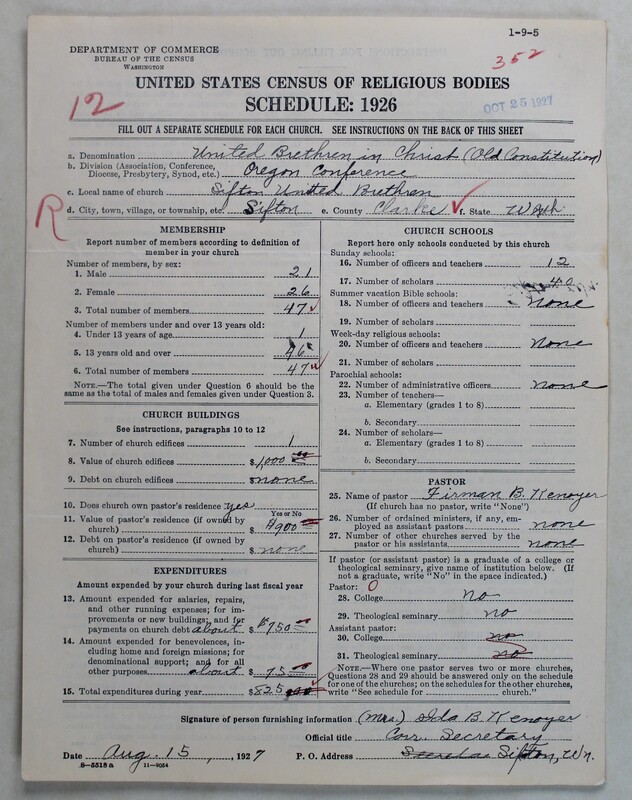 1-9-5
DEPARTMENT OF COMMERCE
BUREAU OF THE CENSUS
WASHINGTON
352
12
UNITED STATES CENSUS OF RELIGIOUS BODIES
SCHEDULE: 1926
OCT 25 1927
FILL OUT A SEPARATE SCHEDULE FOR EACH CHURCH. SEE INSTRUCTIONS ON THE BACK OF THIS SHEET
a. Denomination United Brethren in Christ (Old Constitution)
b. Division (Association, Conference, Diocese, Presbytery, Synod, etc.) Oregon Conference
c. Local name of church Sifton United Brethren
R
d. City, town, village, or township, etc. Sifton e. County Clarke f. State Wash
MEMBERSHIP
Report number of members according to definition of
member in your church
Number of members, by sex:
1. Male 21
2. Female 26
3. Total number of members 47
Number of members under and over 13 years old:
4. Under 13 years of age 1
5. 13 years old and over 46
6. Total number of members 47
NOTE.—The total given under Question 6 should be
same as the total of males and females given under Question 3.
CHURCH BUILDINGS
See instructions, paragraphs 10 to 12
7. Number of church edifices 1
8. Value of church edifices $1,000 00
9. Debt on church edifices $ none
10. Does church own pastor's residence yes
Yes or No
11. Value of pastor's residence (if owned by
church) $ $900
12. Debt on pastor's residence (if owned by
church) $ none
EXPENDITURES
Amount expended by your church during last fiscal year
13. Amount expended for salaries, repairs,
and other running expenses; for im-
provements or new buildings; and for
payments on church debt about $ $750
14. Amount expended for benevolences, in-
cluding home and foreign missions; for
denominational support; and for all
other purposes about $ 75
15. Total expenditures during year $825
CHURCH SCHOOLS
Report here only schools conducted by this church
Sunday schools:
16. Number of officers and teachers 12
17. Number of scholars 40
Summer vacation Bible schools:
18. Number of officers and teachers none
19. Number of scholars
Week-day religious schools:
20. Number of officers and teachers none
21. Number of scholars
Parochial schools:
22. Number of administrative officers none
23. Number of teachers—
a. Elementary (grades 1 to 8)
b. Secondary
24. Number of scholars—
a. Elementary (grades 1 to 8)
b. Secondary
PASTOR
25. Name of pastor Firman B. Kenoyer
(If church has no pastor, write "None")
26. Number of ordained ministers, if any, em-
ployed as assistant pastors none
27. Number of other churches served by the
pastor or his assistants none
If pastor (or assistant pastor) is a graduate of a college or
theological seminary, give name of institution below. (If
not a graduate, write "No" in the space indicated.)
Pastor: 0
28. College no
29. Theological seminary no
Assistant pastor:
30. College no
31. Theological seminary no
NOTE.—Where one pastor serves two or more churches,
Questions 28 and 29 should be answered only on the schedule
for one of the churches; on the schedules for the other churches,
write "See schedule for church."
Signature of person furnishing information (Mrs.) Ida B. Kenoyer
Official title Corr. Secretary
Date Aug. 15, 1927 P. O. Address Sifton, Wn.
8-5518a 11-9054